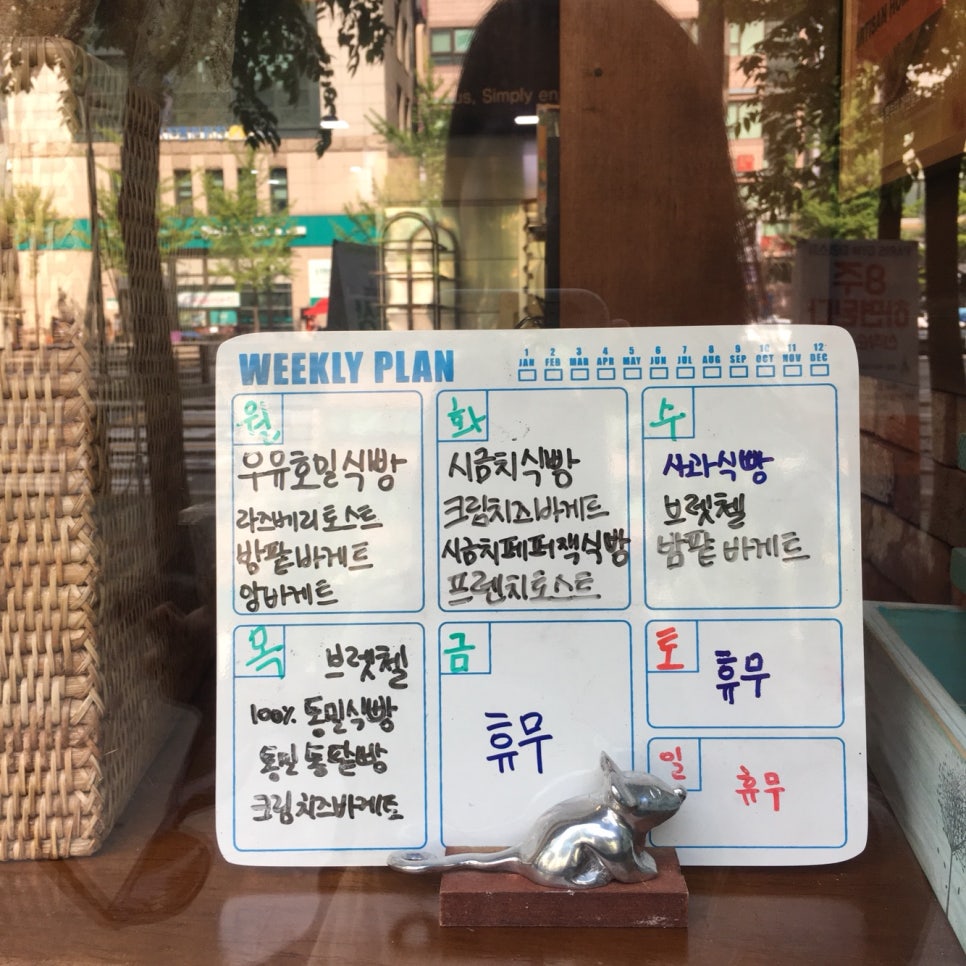 us, Simply en
8주
WEEKLY PLAN
1 2 3 4 5 6 7 8 9 10 11 12
JAN FEB MAR APR MAY JUN JUL AUG SEP OCT NOV DEC
월
우유호일식빵
라즈베리토스트
밤팥바게트
앙바게트
화
시금치식빵
크림치즈바게트
시금치페퍼잭식빵
프렌치토스트
수
사과식빵
브렛첼
밤팥 바게트
목
브렛첼
100% 통밀식빵
통밀 통팥빵
크림치즈바게트
금
휴무
토
휴무
일
휴무